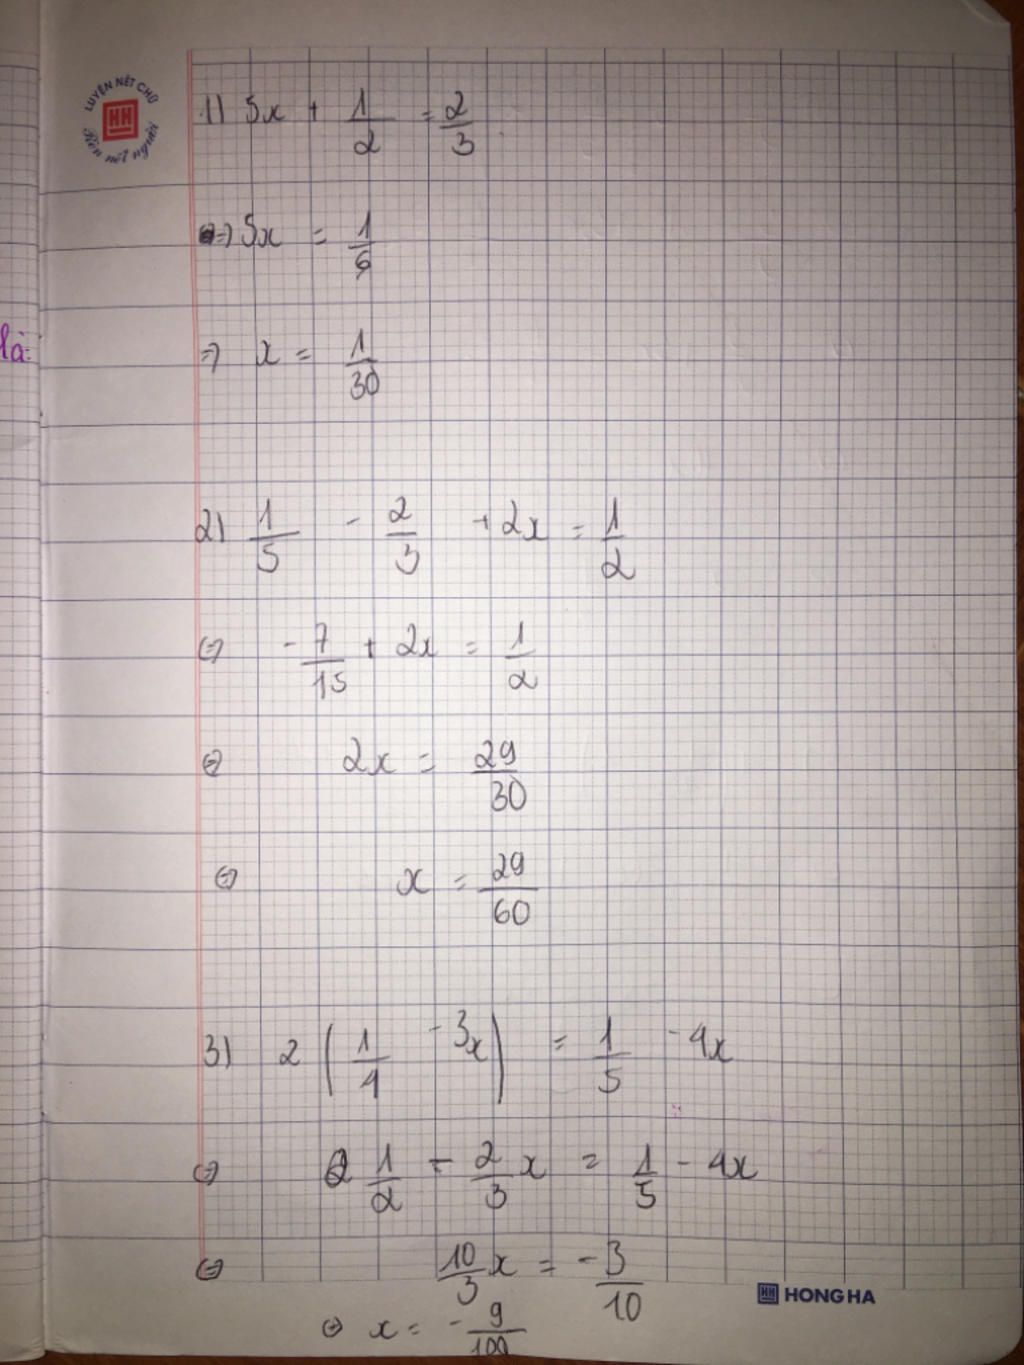 LUYỆN NÉT CHỮ
HH
Rèn nết người
1) 5x + 1/2 = 2/3
=> 5x = 1/6
là:
=> x = 1/30
2) 1/5 - 2/3 + 2x = 1/2
<=> -7/15 + 2x = 1/2
<=> 2x = 29/30
<=> x = 29/60
3) 2 (1/4 - 3x) = 1/5 - 4x
<=> 1/2 - 2/3 x = 1/5 - 4x
<=> 10/3 x = -3/10
HH HONG HA
<=> x = -9/100